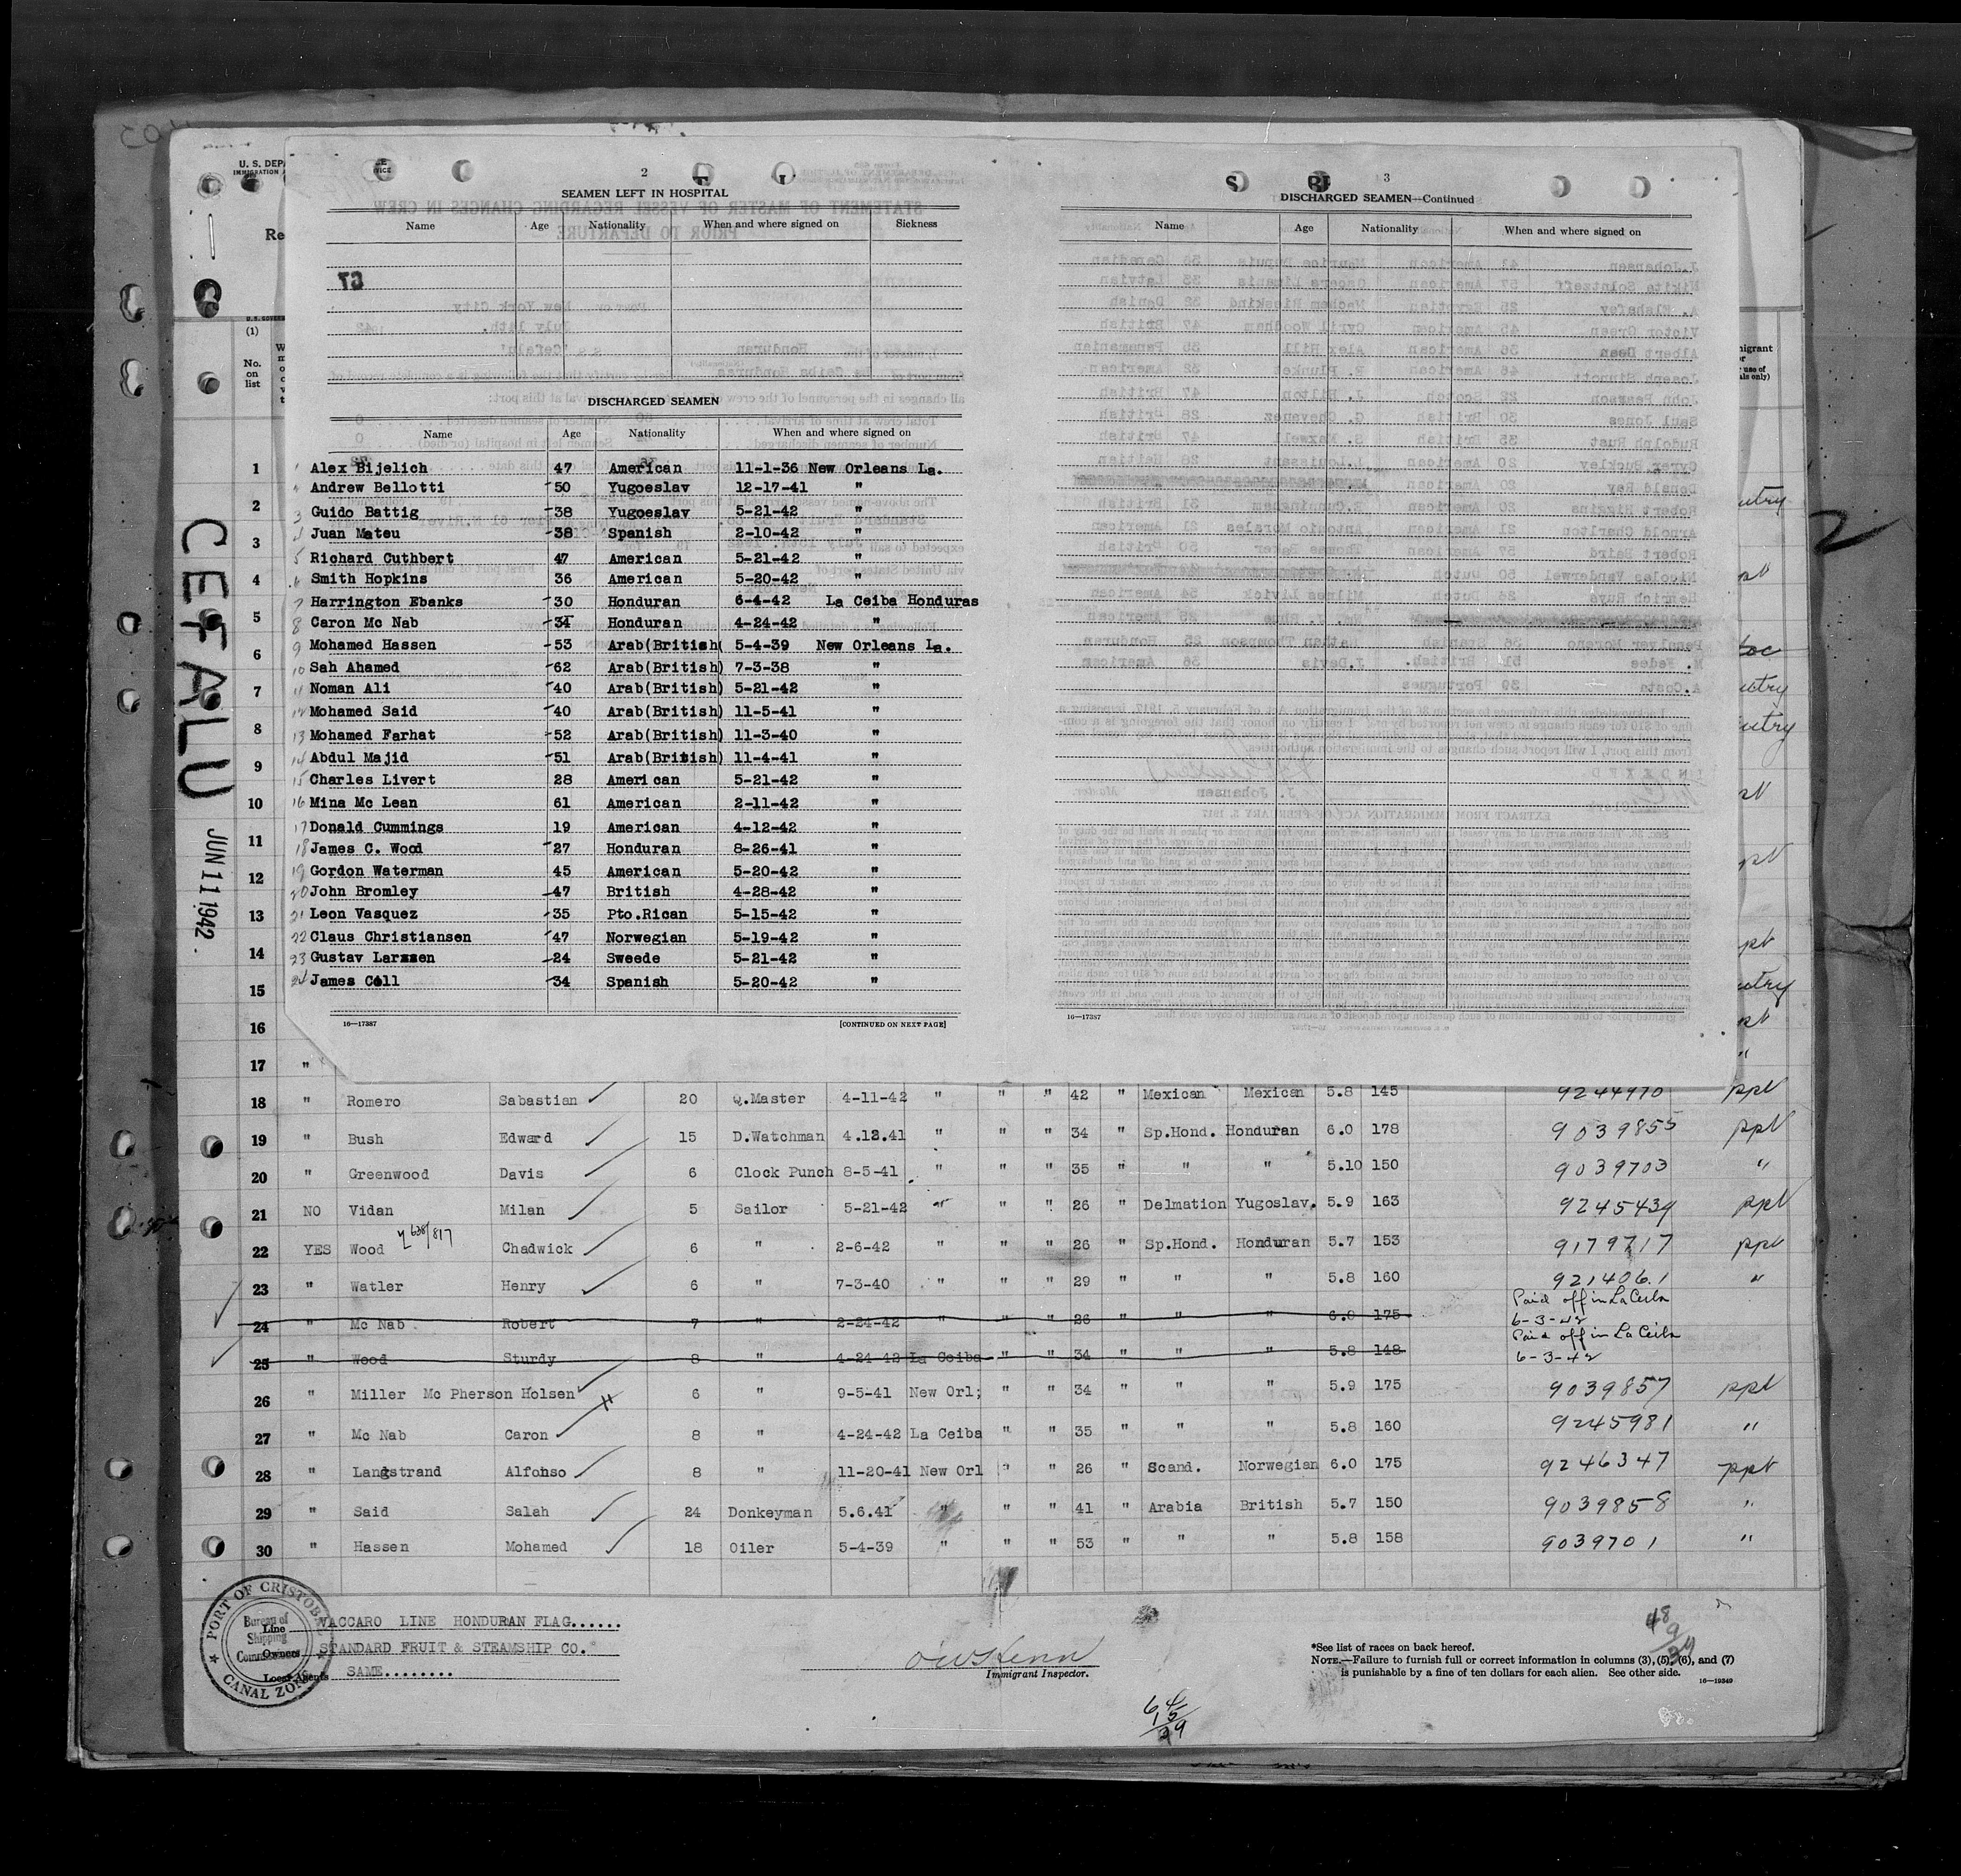 U. S. DEPA
IMMIGRATION A
Re
(1)
No.
on
list
CEFALU
JUN 11 1942
2
SEAMEN LEFT IN HOSPITAL
Name Age Nationality When and where signed on Sickness
DISCHARGED SEAMEN
Name Age Nationality When and where signed on
1 Alex Bijelich 47 American 11-1-36 New Orleans La.
Andrew Bellotti 50 Yugoeslav 12-17-41 "
3 Guido Battig 38 Yugoeslav 5-21-42 "
Juan Mateu 38 Spanish 2-10-42 "
5 Richard Cuthbert 47 American 5-21-42 "
6 Smith Hopkins 36 American 5-20-42 "
7 Harrington Ebanks 30 Honduran 6-4-42 La Ceiba Honduras
8 Caron Mc Nab 34 Honduran 4-24-42 "
9 Mohamed Hassen 53 Arab(British( 5-4-39 New Orleans La.
10 Sah Ahamed 62 Arab(British) 7-3-38 "
11 Noman Ali 40 Arab(British) 5-21-42 "
12 Mohamed Said 40 Arab(British) 11-5-41 "
13 Mohamed Farhat 52 Arab(British) 11-3-40 "
14 Abdul Majid 51 Arab(British) 11-4-41 "
15 Charles Livert 28 American 5-21-42 "
16 Mina Mc Lean 61 American 2-11-42 "
17 Donald Cummings 19 American 4-12-42 "
18 James C. Wood 27 Honduran 8-26-41 "
19 Gordon Waterman 45 American 5-20-42 "
20 John Bromley 47 British 4-28-42 "
21 Leon Vasquez 35 Pto.Rican 5-15-42 "
22 Claus Christiansen 47 Norwegian 5-19-42 "
23 Gustav Larssen 24 Sweede 5-21-42 "
24 James Coll 34 Spanish 5-20-42 "
16—17387 [CONTINUED ON NEXT PAGE]
3
DISCHARGED SEAMEN—Continued
Name Age Nationality When and where signed on
16—17387
1
2
3
4
5
6
7
8
9
10
11
12
13
14
15
16
17 "
18 " Romero Sabastian 20 Q.Master 4-11-42 " " " 42 " Mexican Mexican 5.8 145 9244970 ppt
19 " Bush Edward 15 D.Watchman 4.12.41 " " " 34 " Sp.Hond. Honduran 6.0 178 9039855 ppt
20 " Greenwood Davis 6 Clock Punch 8-5-41 " " " 35 " " " 5.10 150 9039703 "
21 NO Vidan Milan 5 Sailor 5-21-42 " " " 26 " Delmation Yugoslav. 5.9 163 9245439 ppt
22 YES Wood Chadwick 6 " 2-6-42 " " " 26 " Sp.Hond. Honduran 5.7 153 9179717 ppt
23 " Watler Henry 6 " 7-3-40 " " " 29 " " " 5.8 160 9214061 "
24 " Mc Nab Robert 7 " 2-24-42 " " " 26 " " " 6.0 175 Paid off in La Ceiba 6-3-42
25 " Wood Sturdy 8 " 4-24-42 La Ceiba " " 34 " " " 5.8 148 Paid off in La Ceiba 6-3-42
26 " Miller Mc Pherson Holsen 6 " 9-5-41 New Orl; " " 34 " " " 5.9 175 9039857 ppt
27 " Mc Nab Caron 8 " 4-24-42 La Ceiba " " 35 " " " 5.8 160 9245981 "
28 " Langstrand Alfonso 8 " 11-20-41 New Orl " " 26 " Scand. Norwegian 6.0 175 9246347 ppt
29 " Said Salah 24 Donkeyman 5.6.41 " " " 41 " Arabia British 5.7 150 9039858 "
30 " Hassen Mohamed 18 Oiler 5-4-39 " " " 53 " " " 5.8 158 9039701 "
PORT OF CRISTOBAL
Bureau of
Shipping
CANAL ZONE
Line VACCARO LINE HONDURAN FLAG......
Owners STANDARD FRUIT & STEAMSHIP CO.
Local Agents SAME........
Immigrant Inspector.
*See list of races on back hereof.
NOTE.—Failure to furnish full or correct information in columns (3), (5), (6), and (7)
is punishable by a fine of ten dollars for each alien. See other side.
16—19349